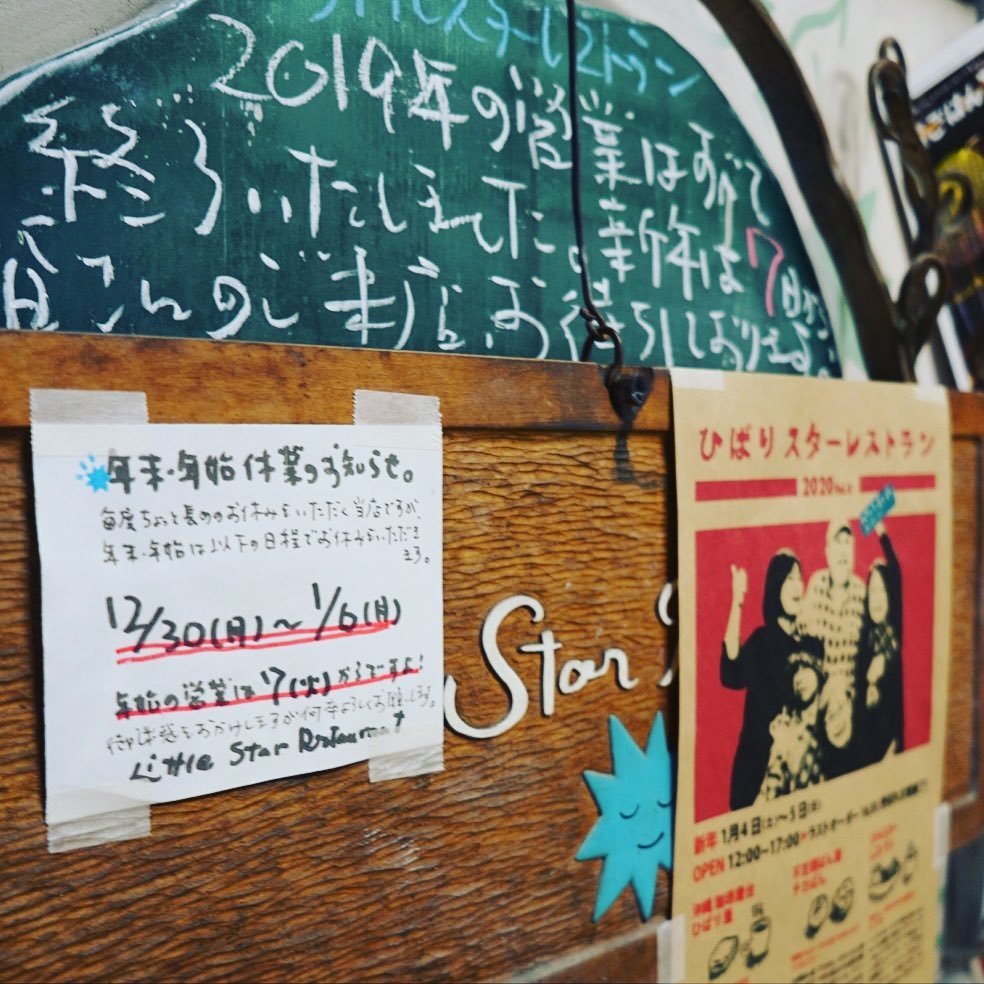 リトルスターレストラン
2019年の営業はすべて
終了いたしました。新年は7日から
皆さんのご来店、お待ちしております。
年末・年始休業のお知らせ。
毎度ちょっと長めのお休みをいただく当店ですが、
年末・年始は以下の日程でお休みをいただきま
ます。
12/30(月)〜1/6(月)
年始の営業は1/7(火)からですよ!
御迷惑をおかけしますが何卒よろしくお願いします。
Little Star Restaurant
Star
ひばり スターレストラン
2020
新年 1月4日(土)〜5日(日)
OPEN 12:00〜17:00 ラストオーダー
沖縄 珈琲屋台
ひばり屋